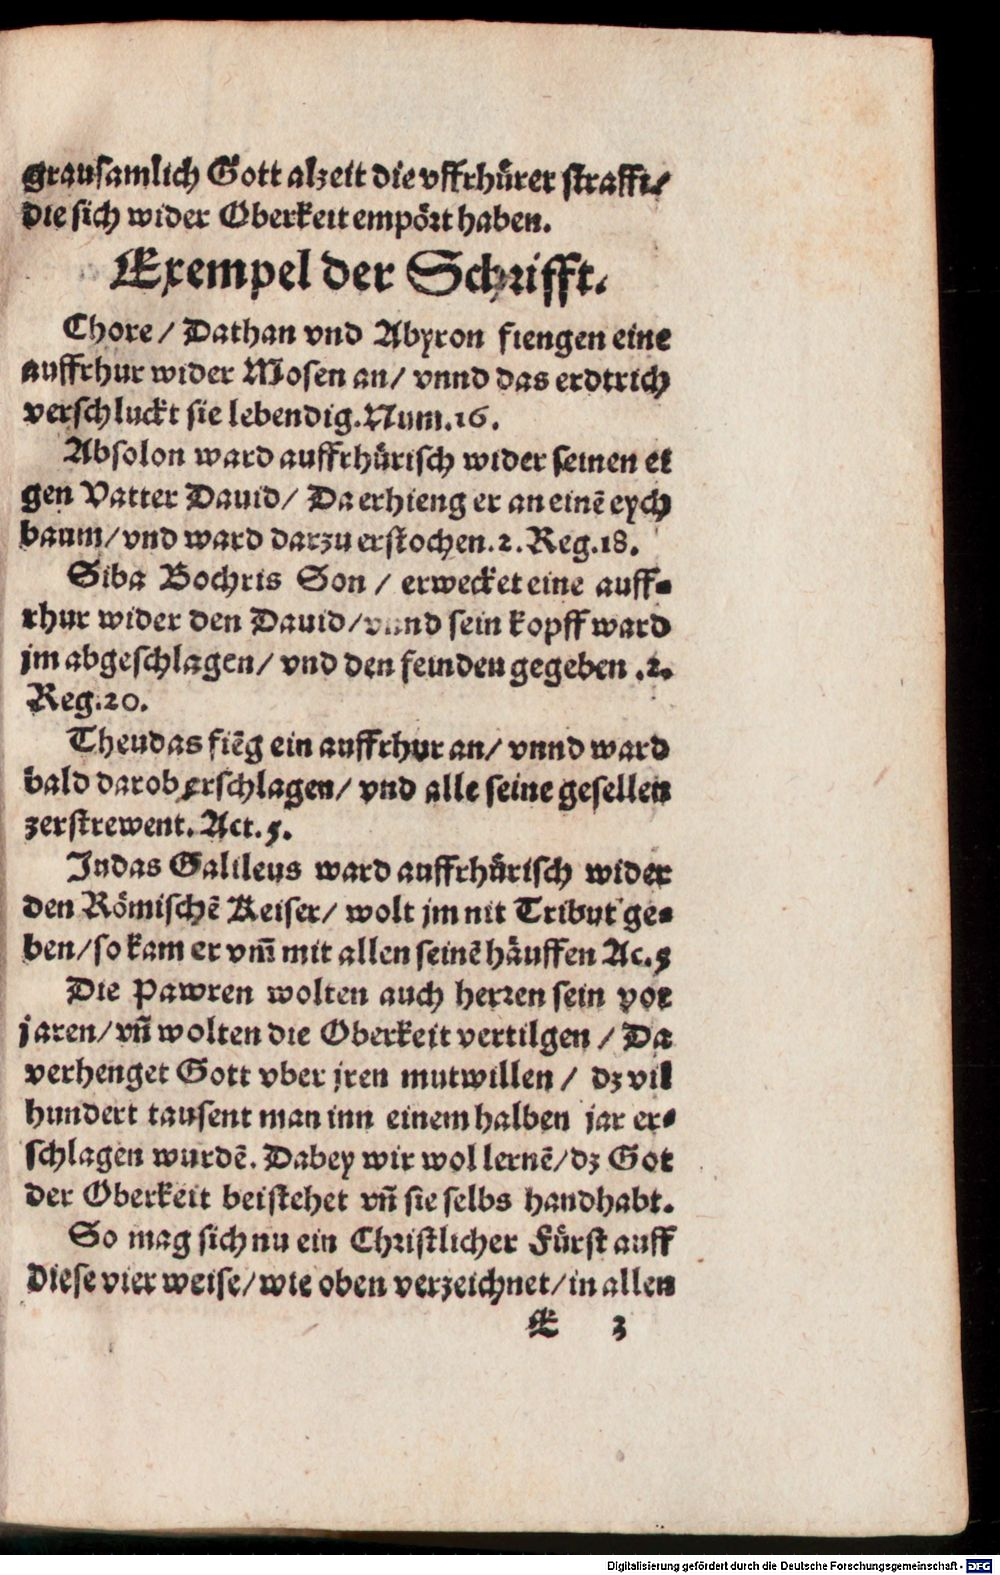 grausamlich Gott alzeit die vffrhürer strafft/
die sich wider Oberkeit empört haben.
Exempel der Schrifft.
Chore / Dathan vnd Abyron fiengen eine
auffrhur wider Mosen an/ vnnd das erdtrich
verschluckt sie lebendig. Num.16.
Absolon ward auffrhürisch wider seinen ei
gen Vatter Dauid/ Da erhieng er an einē eych
baum/ vnd ward darzu erstochen. 2. Reg.18.
Siba Bochris Son / erwecket eine auff-
rhur wider den Dauid/ vnnd sein kopff ward
jm abgeschlagen/ vnd den feinden gegeben .2.
Reg.20.
Theudas fiēg ein auffrhur an/ vnnd ward
bald darob erschlagen/ vnd alle seine gesellen
zerstrewent. Act.5.
Judas Galileus ward auffrhürisch wider
den Römischē Keiser/ wolt jm nit Tribut ge-
ben/ so kam er vm̄ mit allen seinē häuffen Ac.5
Die Pawren wolten auch herren sein vor
jaren/ vn̄ wolten die Oberkeit vertilgen / Da
verhenget Gott vber jren mutwillen / dz vil
hundert tausent man inn einem halben jar er-
schlagen wurdē. Dabey wir wol lernē/ dz Got
der Oberkeit beistehet vn̄ sie selbs handhabt.
So mag sich nu ein Christlicher Fürst auff
diese vier weise/ wie oben verzeichnet/ in allen
E 3
Digitalisierung gefördert durch die Deutsche Forschungsgemeinschaft - DFG